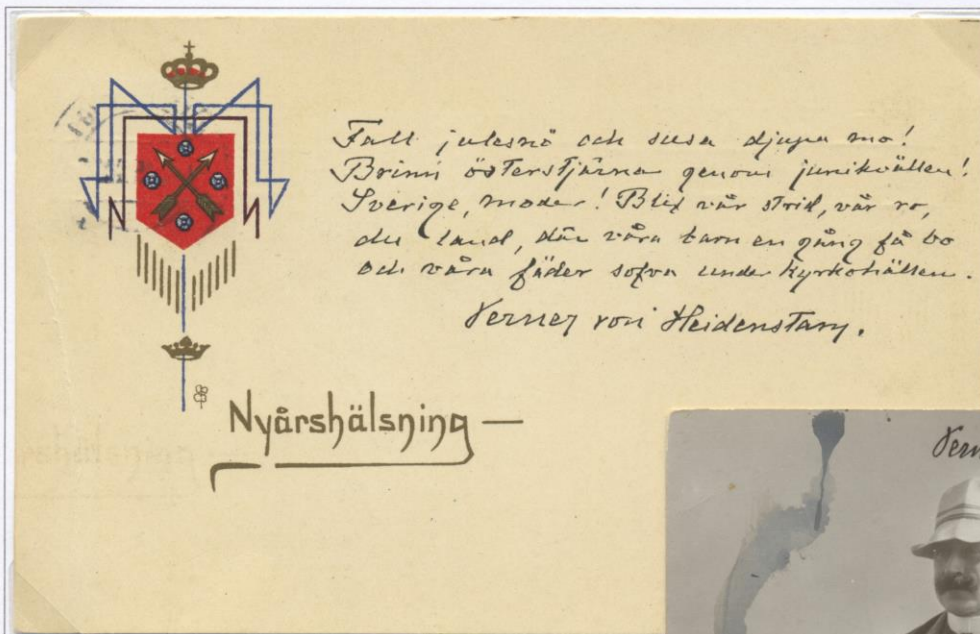 Fall julesnö och susa djupa mo!
Brinn österstjärna genom junikvällen!
Sverige, moder! Blif vår strid, vår ro,
du land, där våra barn en gång få bo
och våra fäder sofva under kyrkohällen.
Verner von Heidenstam.
Nyårshälsning —
Vern